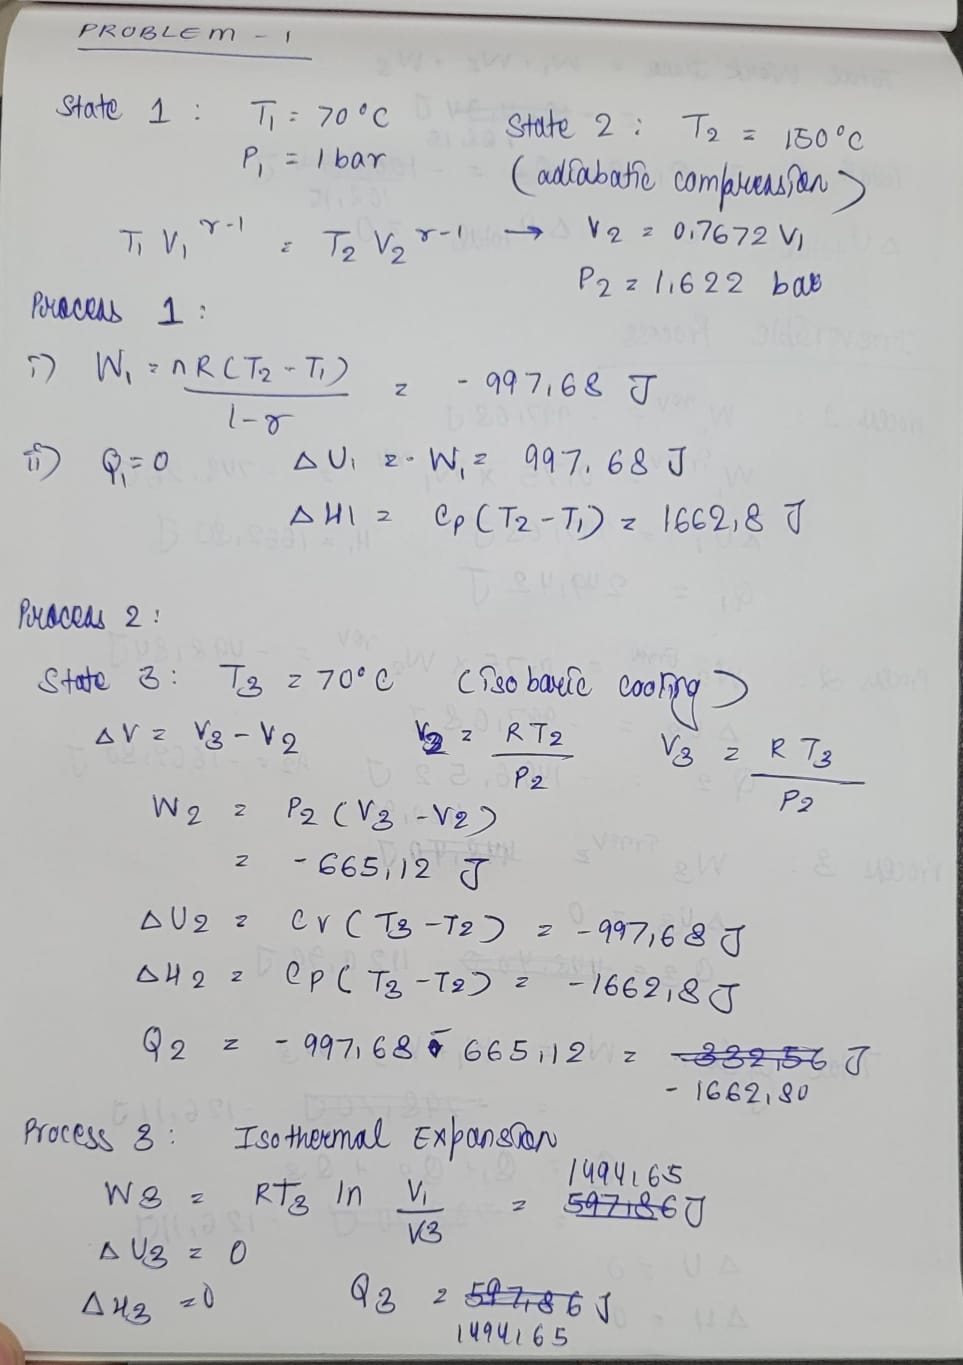 PROBLEM - 1
State 1 : T₁ = 70°C State 2 : T₂ = 150°C
P₁ = 1 bar (adiabatic compression)
T₁ V₁^γ-1 = T₂ V₂^γ-1 → V₂ = 0.7672 V₁
P₂ = 1.622 bar
Process 1 :
i) W₁ = nR(T₂ - T₁) / 1-γ = - 997.68 J
ii) Q₁ = 0 ΔU₁ = - W₁ = 997.68 J
ΔH1 = Cp(T₂ - T₁) = 1662.8 J
Process 2 :
State 3 : T₃ = 70°C (isobaric cooling)
ΔV = V₃ - V₂ V₂ = RT₂ / P₂ V₃ = RT₃ / P₂
W₂ = P₂ (V₃ - V₂)
= - 665.12 J
ΔU₂ = Cv(T₃ - T₂) = -997.68 J
ΔH₂ = Cp(T₃ - T₂) = -1662.8 J
Q₂ = - 997.68 - 665.12 = -332.56 J
- 1662.80
Process 3 : Isothermal Expansion
1494.65
W₃ = RT₃ ln V₁ / V₃ = 597.86 J
ΔU₃ = 0
ΔH₃ = 0 Q₃ = 597.86 J
1494.65